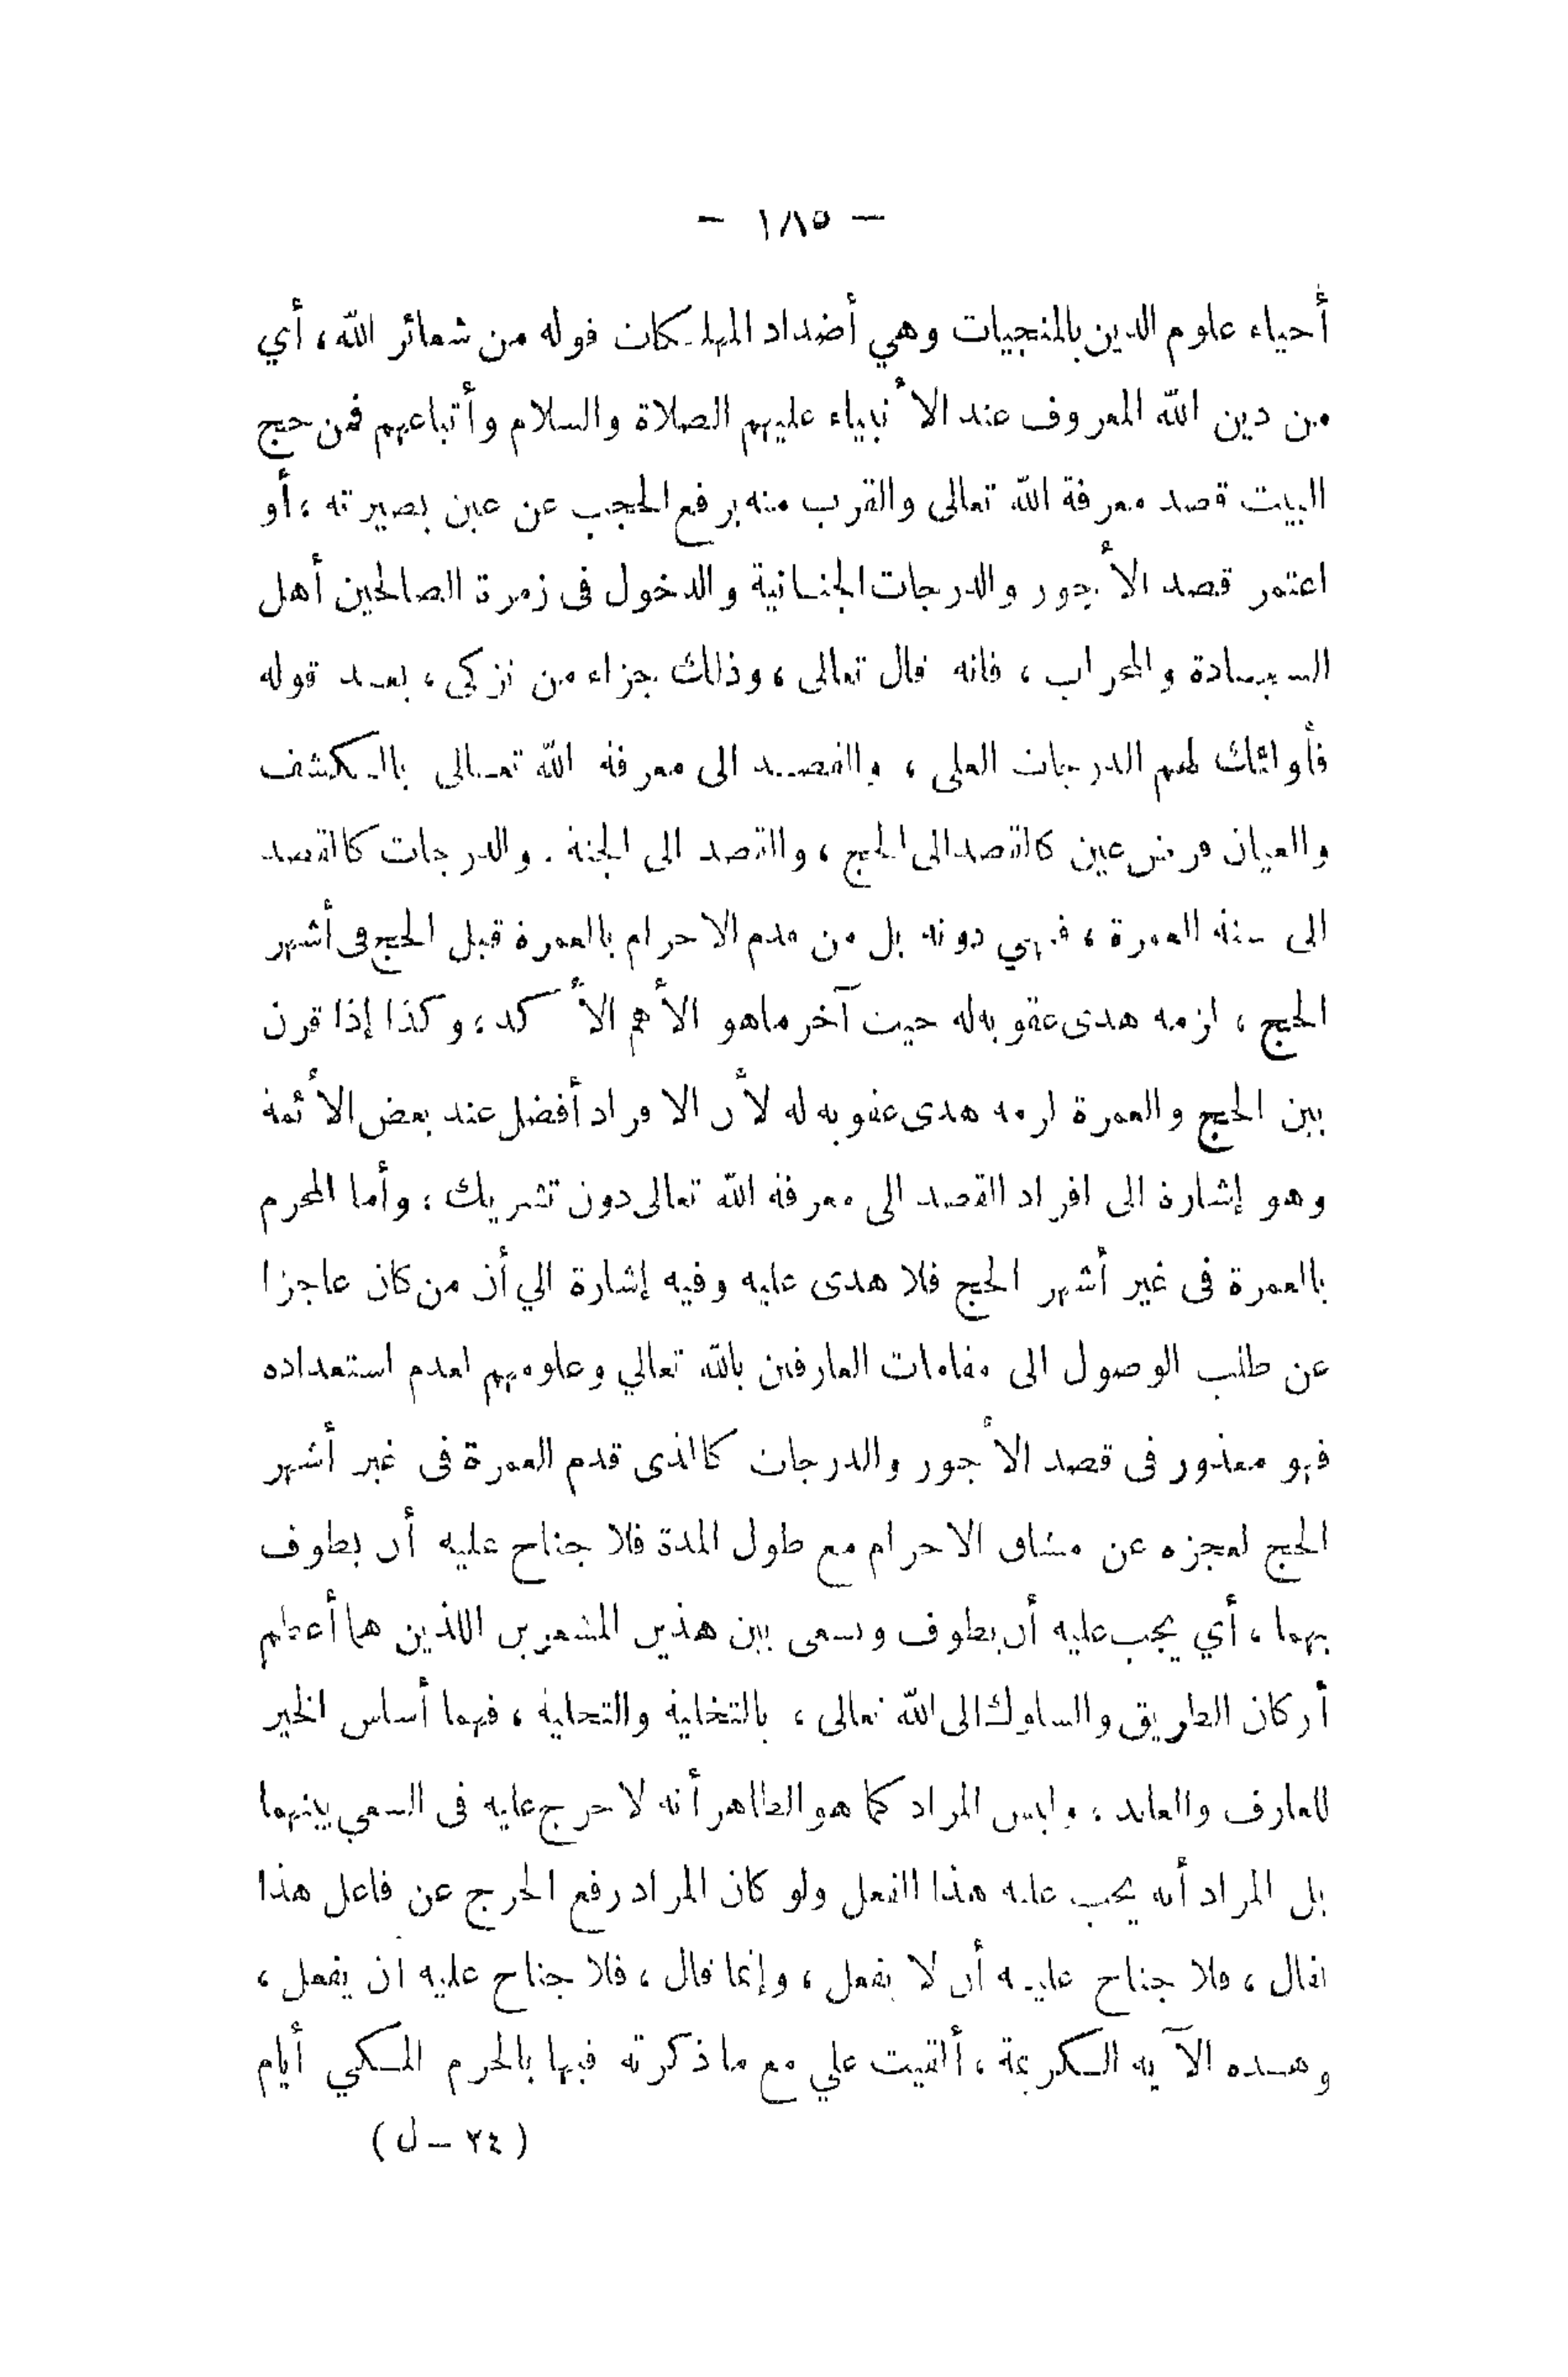 — ١٨٥ —
أحياء علوم الدين بالمنجيات وهي أضداد المهلكات قوله من شعائر الله، أي
من دين الله المعروف عند الأنبياء عليهم الصلاة والسلام وأتباعهم فمن حج
البيت قصد معرفة الله تعالى والقرب منه برفع الحجب عن عين بصيرته، أو
اعتمر قصد الأجور والدرجات الجنانية والدخول فى زمرة الصالحين أهل
السجادة والمحراب، فانه قال تعالى، وذلك جزاء من تزكى، بعد قوله
فأولئك لهم الدرجات العلى، والقصد الى معرفة الله تعالى بالكشف
والعيان فرض عين كالقصد الى الحج، والقصد الى الجنة. والدرجات كالقصد
الى سنة العمرة، فهي دونه بل من قدم الاحرام بالعمرة قبل الحج فى أشهر
الحج، لزمه هدى عقوبه له حيث آخر ماهو الأهم الأكد، وكذا إذا قرن
بين الحج والعمرة لزمه هدى عقوبه له لأن الافراد أفضل عند بعض الأئمة
وهو إشارة الى افراد القصد الى معرفة الله تعالى دون تشريك، وأما المحرم
بالعمرة فى غير أشهر الحج فلا هدى عليه وفيه إشارة الي أن من كان عاجزا
عن طلب الوصول الى مقامات العارفين بالله تعالي وعلومهم لعدم استعداده
فهو معذور فى قصد الأجور والدرجات كالذى قدم العمرة فى غير أشهر
الحج لعجزه عن مشاق الاحرام مع طول المدة فلا جناح عليه أن يطوف
بهما، أي يجب عليه أن يطوف ويسعى بين هذين المشعرين اللذين هما أعظم
أركان الطريق والسلوك الى الله تعالى، بالتخلية والتحلية، فهما أساس الخير
للعارف والعابد، وليس المراد كما هو الظاهر أنه لا حرج عليه فى السعي بينهما
بل المراد أنه يجب عليه هذا الفعل ولو كان المراد رفع الحرج عن فاعل هذا
لقال، فلا جناح عليه أن لا يفعل، وإنما قال، فلا جناح عليه ان يفعل،
وهذه الآيه الكريمة، ألقيت علي مع ما ذكرته فيها بالحرم المكي أيام
(٢٤ — ل)